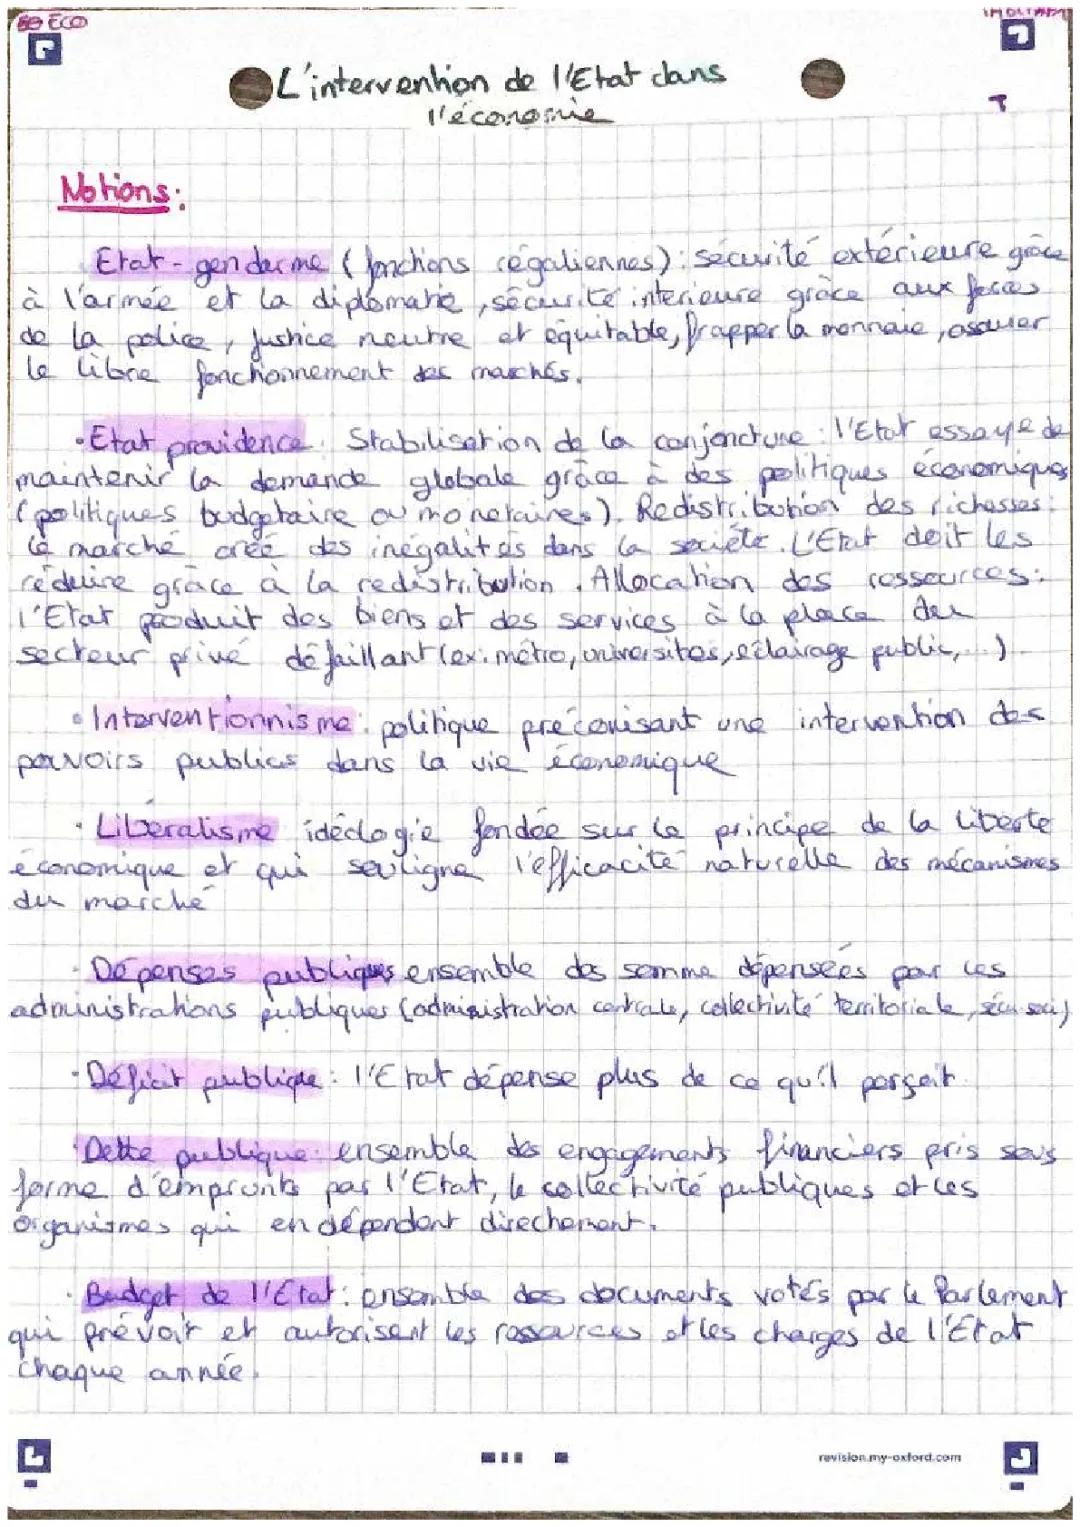 ECO
L'intervention de l'Etat dans
l'économie
Notions:
Etat-gendarme (fonctions régaliennes): sécurité extérieure grâce
à l'armée et la diplomatie, sécurité interieure grâce aux forces
de la police, justice neutre et équitable, frapper la monnaie, assurer
le libre fonctionnement des marchés.
• Etat providence: Stabilisation de la conjoncture: l'Etat essaye de
maintenir la demande globale grâce à des politiques économiques
(politiques budgetaire ou monetaires). Redistribution des richesses:
le marché créé des inégalités dans la société. L'Etat doit les
réduire grâce à la redistribution. Allocation des ressources:
l'Etat produit des biens et des services à la place du
secteur privé défaillant (ex: métro, universites, eclairage public,...)
• Interventionnisme: politique préconisant une intervention des
pouvoirs publics dans la vie économique
• Libéralisme idéologie fondée sur le principe de la liberté
économique et qui souligne l'efficacité naturelle des mécanismes
du marché
• Dépenses publiques ensemble des somme dépensées par les
administrations publiques (administration centrale, collectivité territoriale, sécu soc)
• Déficit publique: l'Etat dépense plus de ce qu'il perçoit.
• Dette publique: ensemble des engagements financiers pris sous
forme d'emprunts par l'Etat, le collectivité publiques et les
organismes qui en dépendent directement.
• Budget de l'Etat: ensemble des documents votés par le Parlement
qui prévoit et autorisent les ressources et les charges de l'Etat
chaque année.
revision.my-oxford.com